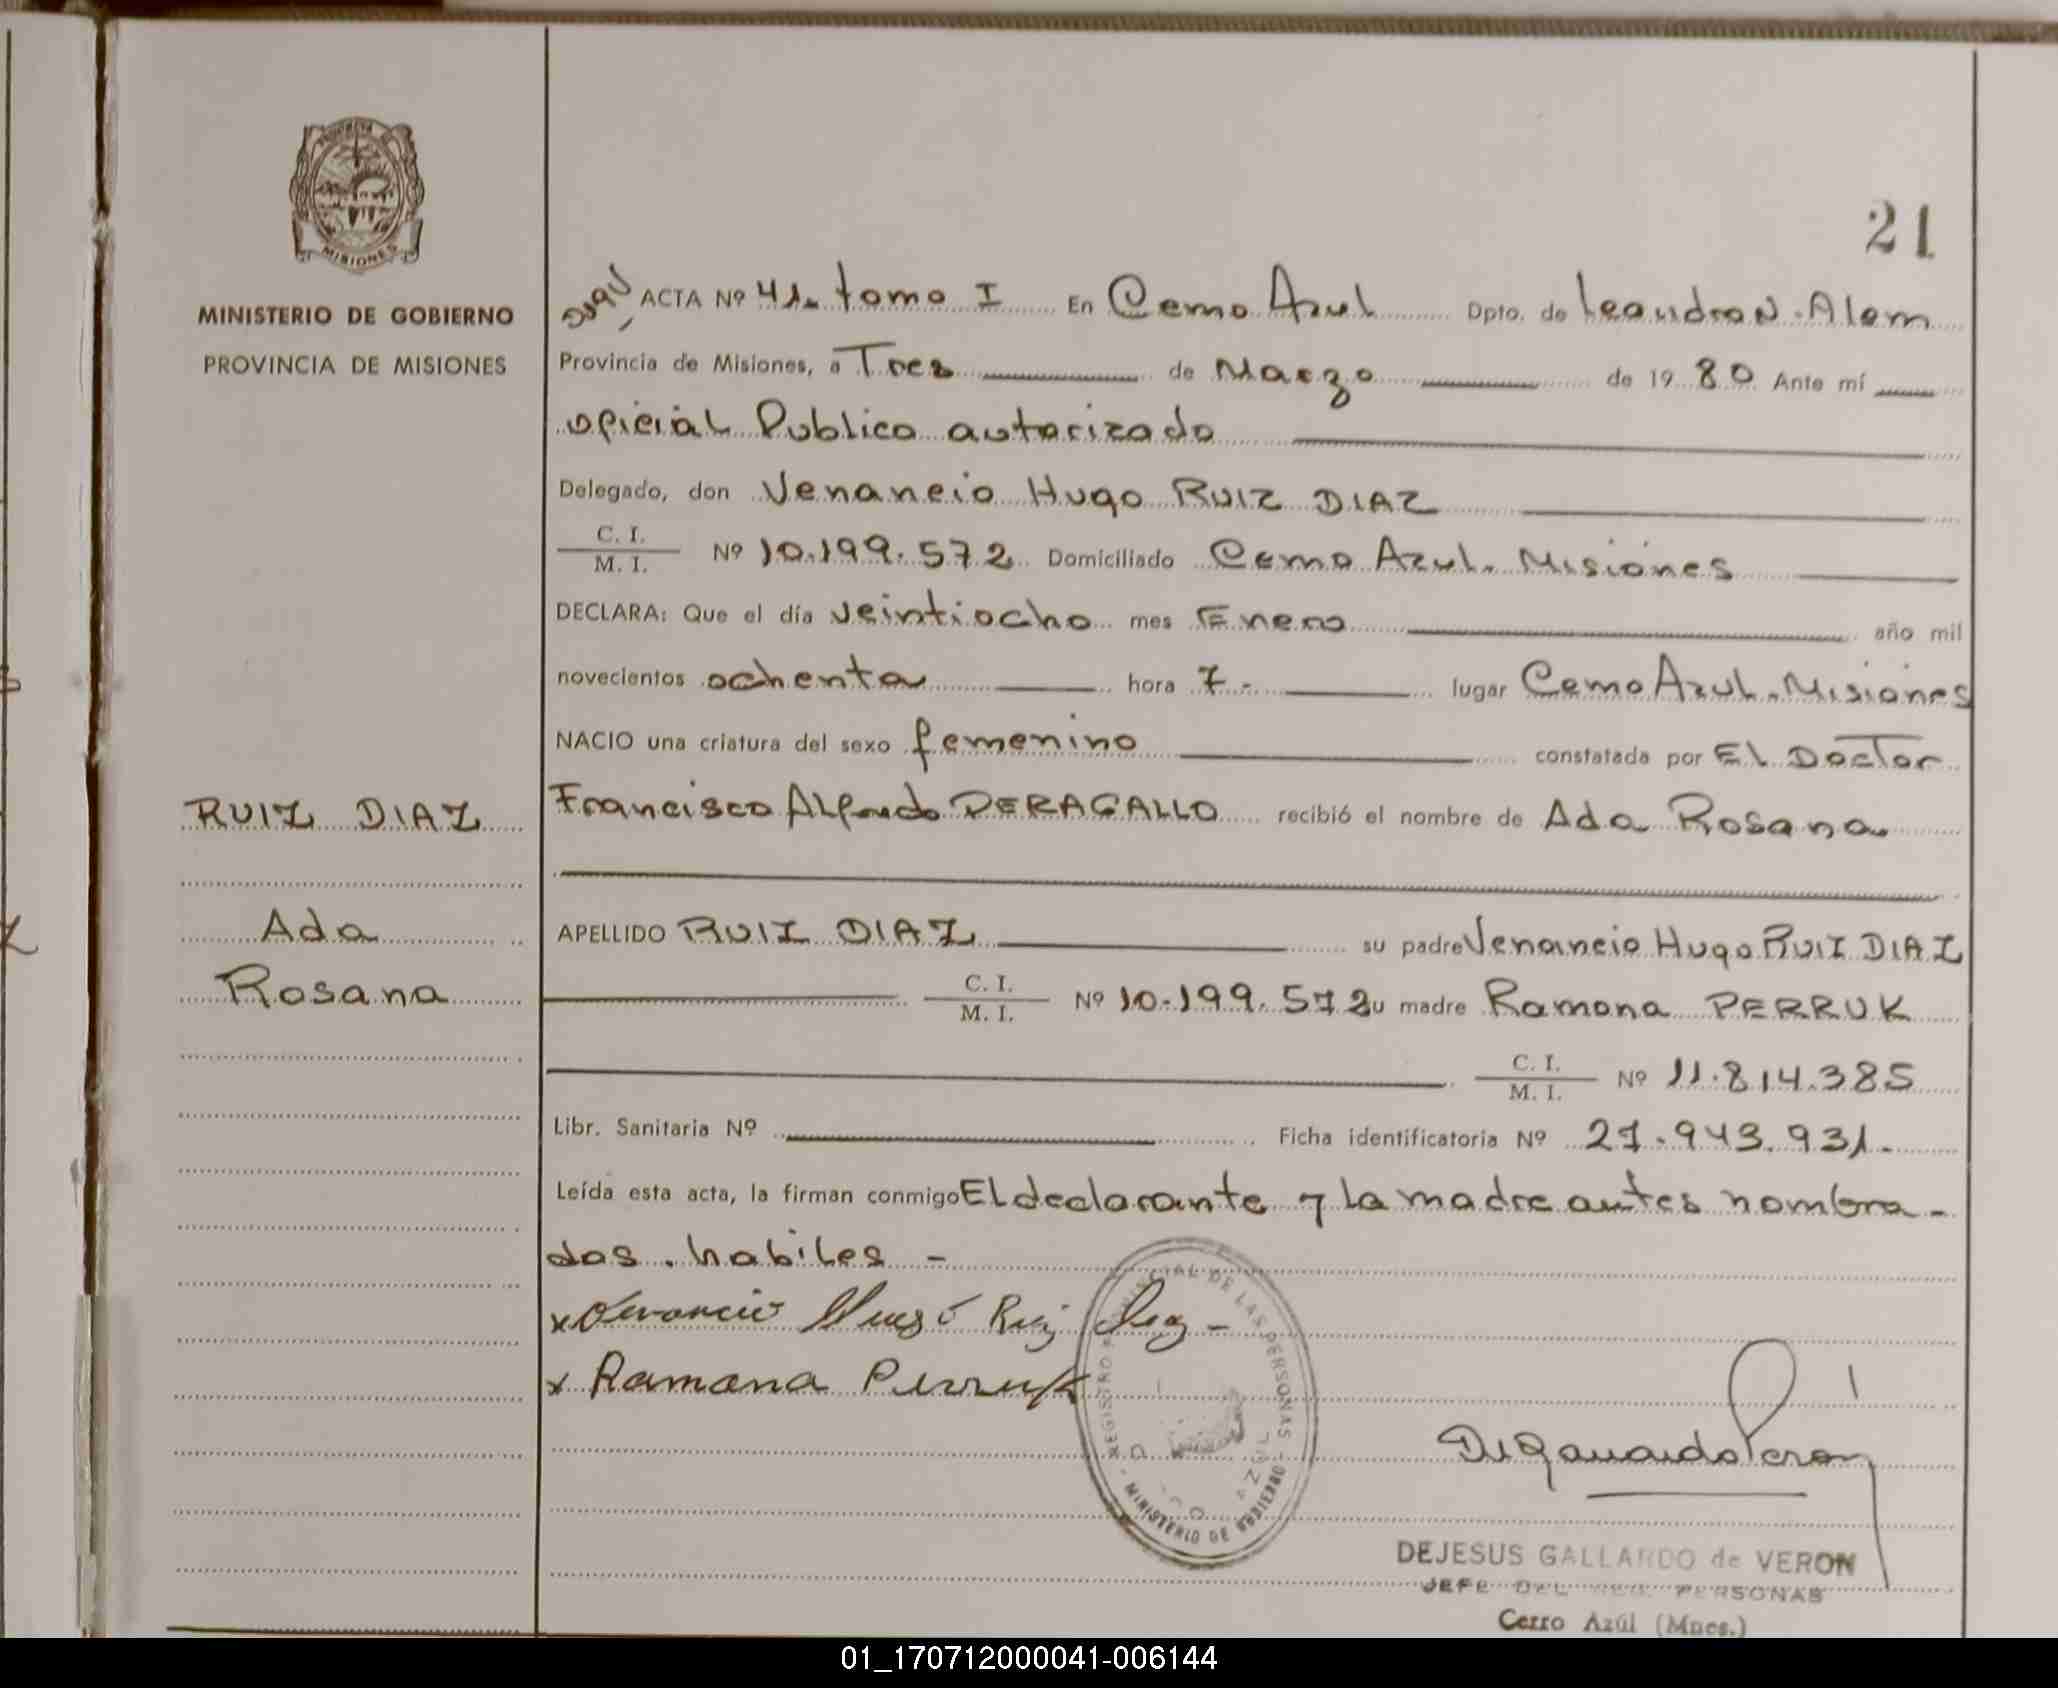 21
ACTA Nº 41- tomo I En Cerro Azul Dpto. de Leandro N. Alem
MINISTERIO DE GOBIERNO
PROVINCIA DE MISIONES
Provincia de Misiones, a Tres de Marzo de 1980 Ante mí
oficial Publico autorizado
Delegado, don Venancio Hugo RUIZ DIAZ
C. I.
M. I. Nº 10.199.572 Domiciliado Cerro Azul. Misiones
DECLARA: Que el día veintiocho mes Enero año mil
novecientos ochenta hora 7- lugar Cerro Azul. Misiones
NACIO una criatura del sexo femenino constatada por El Doctor
RUIZ DIAZ
Francisco Alfredo PERAGALLO recibió el nombre de Ada Rosana
Ada
Rosana
APELLIDO RUIZ DIAZ su padre Venancio Hugo RUIZ DIAZ
C. I.
M. I. Nº 10.199.572 su madre Ramona PERRUK
C. I.
M. I. Nº 11.814.385
Libr. Sanitaria Nº Ficha identificatoria Nº 27.943.931.-
Leída esta acta, la firman conmigo El declarante y la madre antes nombra-
dos. habiles -
x Venancio Hugo Ruiz Diaz -
x Ramona Perruk
REGISTRO PROVINCIAL DE LAS PERSONAS - MINISTERIO DE GOBIERNO -
DEJESUS GALLARDO de VERON
JEFE DEL REG. PERSONAS
Cerro Azúl (Mnes.)
01_170712000041-006144